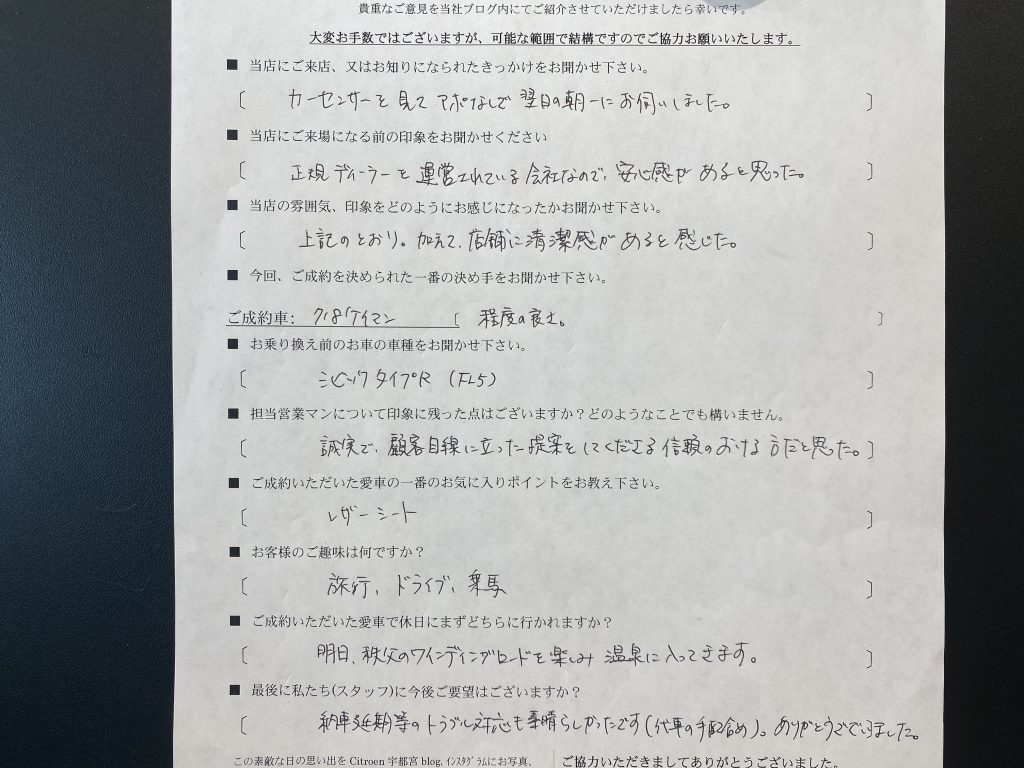 貴重なご意見を当社ブログ内にてご紹介させていただけましたら幸いです。
大変お手数ではございますが、可能な範囲で結構ですのでご協力お願いいたします。
■ 当店にご来店、又はお知りになられたきっかけをお聞かせ下さい。
〔 カーセンサーを見て アポなしで 翌日の朝一にお伺いしました。 〕
■ 当店にご来場になる前の印象をお聞かせください
〔 正規ディーラーを運営されている会社なので、安心感があると思った。 〕
■ 当店の雰囲気、印象をどのようにお感じになったかお聞かせ下さい。
〔 上記のとおり。加えて、店舗に清潔感があると感じた。 〕
■ 今回、ご成約を決められた一番の決め手をお聞かせ下さい。
ご成約車: 718ケイマン 〔 程度の良さ。 〕
■ お乗り換え前のお車の車種をお聞かせ下さい。
〔 シビックタイプR (FL5) 〕
■ 担当営業マンについて印象に残った点はございますか?どのようなことでも構いません。
〔 誠実で、顧客目線に立った提案をしてくださる信頼のおける方だと思った。 〕
■ ご成約いただいた愛車の一番のお気に入りポイントをお教え下さい。
〔 レザーシート 〕
■ お客様のご趣味は何ですか?
〔 旅行、ドライブ、乗馬 〕
■ ご成約いただいた愛車で休日にまずどちらに行かれますか?
〔 明日、秩父のワインディングロードを楽しみ 温泉に入ってきます。 〕
■ 最後に私たち(スタッフ)に今後ご要望はございますか?
〔 納車延期等のトラブル対応も素晴らしかったです(代車の手配含め)。ありがとうございました。
この素敵な日の思い出を Citroen 宇都宮 blog, インスタグラムにお写真、
ご協力いただきましてありがとうございました。